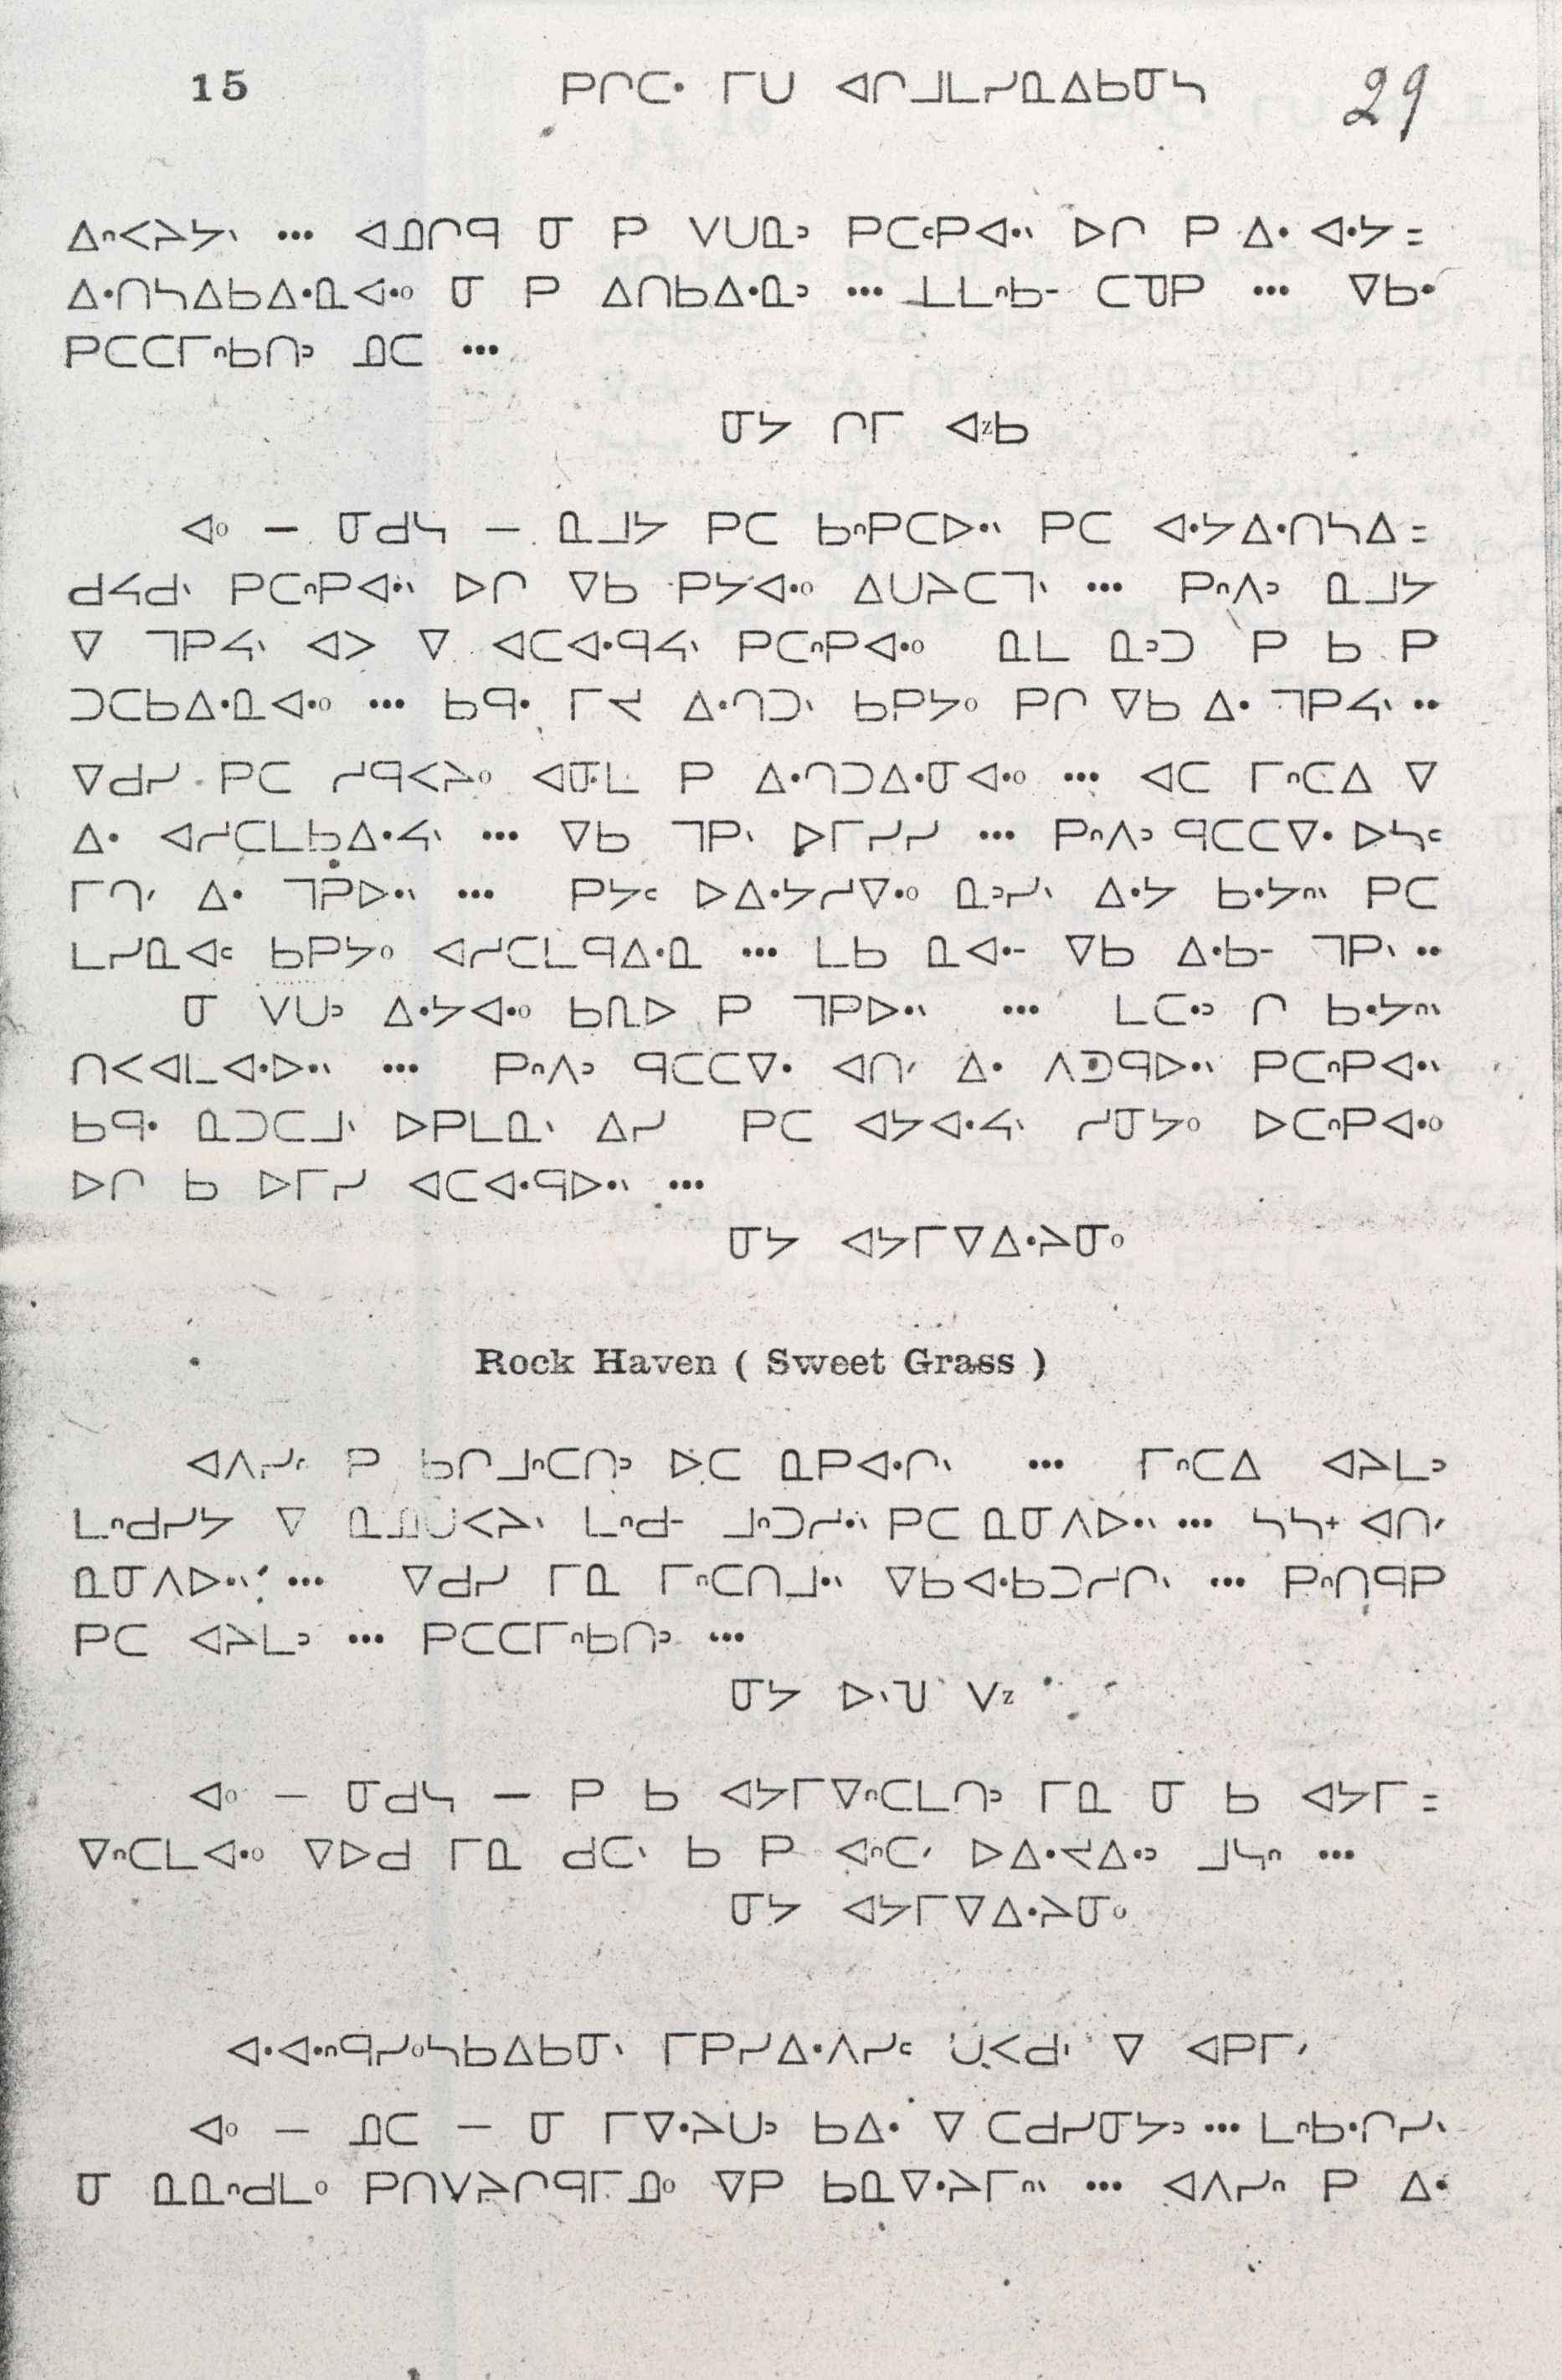 15 ᑭᒋᑕᐧ ᒥᑌ ᐊᒋᒧᒪᓯᓇᐃᑲᓂᓴ 29
ᐃᐢᐸᔨᔭᐠ ... ᐊᓄᒋᑫ ᓂ ᑭ ᐯᑌᓇᐣ ᑭᑕᑭᐊᐧᐠ ᐅᒋ ᑭ ᐃᐧ ᐊᐧᔭ =
ᐃᐧᑎᓴᐃᑲᐃᐧᓇᐊᐧᐤ ᓂ ᑭ ᐃᑎᑲᐃᐧᓇᐣ ... ᒪᒪᐢᑲᐨ ᑕᑯᑭ ... ᐁᑲᐧ
ᑭᑕᑕᒥᐢᑲᑎᐣ ᓄᑕ ...
ᓂᔭ ᒋᒥ ᐊᶻᑲ
ᐊᐤ — ᓂᑯᓴ — ᓇᒧᔭ ᑭᑕ ᑲᐢᑭᑕᐅᐧᐠ ᑭᑕ ᐊᐧᔭᐃᐧᑎᓴᐃ =
ᑯᔭᑯᐠ ᑭᑕᐢᑭᐊᐧᐠ ᐅᒋ ᐁᑲ ᑭᔭᐊᐧᐤ ᐃᑌᔨᑕᒣᐠ ... ᑭᐢᐱᐣ ᓇᒧᔭ
ᐁ ᒣᑭᔭᐠ ᐊᐳ ᐁ ᐊᑕᐊᐧᑫᔭᐠ ᑭᑕᐢᑭᐊᐧᐤ ᓇᒪ ᓇᐣᑐ ᑭ ᑲ ᑭ
ᑐᑕᑲᐃᐧᓇᐊᐧᐤ ... ᑲᑫᐧ ᒥᔪ ᐃᐧᒋᑐᐠ ᑲᑭᔭᐤ ᑭᒋ ᐁᑲ ᐃᐧ ᒣᑭᔭᐠ ..
ᐁᑯᓯ ᑭᑕ ᓯᑫᐸᔨᐤ ᐊᓂᒪ ᑭ ᐃᐧᒋᑐᐃᐧᓂᐊᐧᐤ ... ᐊᑕ ᒥᐢᑕᐃ ᐁ
ᐃᐧ ᐊᓯᑕᒪᑲᐃᐧᔭᐠ ... ᐁᑲ ᒣᑭᐠ ᐅᒥᓯᓯ ... ᑭᐢᐱᐣ ᑫᑕᑕᐁᐧ ᐅᓴᑦ
ᒥᒋᐟ ᐃᐧ ᒣᑭᐅᐧᐠ ... ᑭᔭᑦ ᐅᐃᐧᔭᓯᐁᐧᐤ ᓇᐣᓯᐠ ᐃᐧᔭ ᑲᐧᔭᐢᐠ ᑭᑕ
ᒪᓯᓇᐊᑦ ᑲᑭᔭᐤ ᐊᓯᑕᒪᑫᐃᐧᓇ ... ᒪᑲ ᓇᐊᐧᐨ ᐁᑲ ᐃᐧᑲᐨ ᒣᑭᐠ ..
ᓂ ᐯᑌᐣ ᐃᐧᔭᐊᐧᐤ ᑲᑎᐅ ᑭ ᒣᑭᐅᐧᐠ ... ᒪᑕᐧᐣ ᒋ ᑲᐧᔭᐢᐠ
ᑎᐸᐊᒪᐊᐧᐅᐧᐠ ... ᑭᐢᐱᐣ ᑫᑕᑕᐁᐧ ᐊᑎᐟ ᐃᐧ ᐱᑐᑫᐅᐧᐠ ᑭᑕᐢᑭᐊᐧᐠ
ᑲᑫᐧ ᓇᑐᑕᒧᐠ ᐅᑭᒪᓇᐠ ᐃᓯ ᑭᑕ ᐊᔭᐊᐧᔭᐠ ᓯᓂᔭᐤ ᐅᑕᐢᑭᐊᐧᐤ
ᐅᒋ ᑲ ᐅᒥᓯ ᐊᑕᐊᐧᑫᐅᐧᐠ ...
ᓂᔭ ᐊᔭᒥᐁᐃᐧᔨᓂᐤ
Rock Haven ( Sweet Grass )
ᐊᐱᓯᐢ ᑭ ᑲᒋᒧᐢᑕᑎᐣ ᐅᑕ ᓇᑭᐊᐧᒋᐠ ... ᒥᐢᑕᐃ ᐊᔨᒪᐣ
ᒪᐢᑯᓯᔭ ᐁ ᓇᓄᑌᐸᔨᐠ ᒪᐢᑯᐨ ᒧᐢᑐᓱᐧᐠ ᑭᑕ ᓇᓂᐱᐅᐧᐠ ... ᓴᓴᕀ ᐊᑎᐟ
ᓇᓂᐱᐅᐧᐠ ... ᐁᑯᓯ ᒥᓇ ᒥᐢᑕᑎᒧᐧᐠ ᐁᑲᐊᐧᑲᑐᓯᒋᐠ ... ᑭᐢᑎᑫᑭ
ᑭᑕ ᐊᔨᒪᐣ ... ᑭᑕᑕᒥᐢᑲᑎᐣ ...
ᓂᔭ ᐅᐠᑌ ᐯᶻ
ᐊᐤ — ᓂᑯᓴ — ᑭ ᑲ ᐊᔭᒥᐁᐢᑕᒪᑎᐣ ᒥᓇ ᓂ ᑲ ᐊᔭᒥ =
ᐁᐢᑕᒪᐊᐧᐤ ᐁᐅᑯ ᒥᓇ ᑯᑕᐠ ᑲ ᑭ ᐊᐧᐢᑕᐟ ᐅᐃᐧᔪᐃᐧᐣ ᒧᓴᐢ ...
ᓂᔭ ᐊᔭᒥᐁᐃᐧᔨᓂᐤ
ᐊᐧᐊᐧᐢᑫᓯᐤᓴᑲᐃᑲᓂᐠ ᒥᑭᓯᐃᐧᐱᓯᑦ ᑌᐸᑯᐠ ᐁ ᐊᑭᒥᐟ
ᐊᐤ — ᓄᑕ — ᓂ ᒥᐁᐧᔨᑌᐣ ᑲᐃᐧ ᐁ ᑕᑯᓯᓂᔭᐣ ... ᒪᐢᑲᐧᒋᓯᐠ
ᓂ ᓇᓇᐢᑯᒪᐤ ᑭᑎᐯᔨᒋᑫᒥᓄᐤ ᐁᑭ ᑲᓇᐁᐧᔨᒥᐢᐠ ... ᐊᐱᓯᐢ ᑭ ᐃᐧ